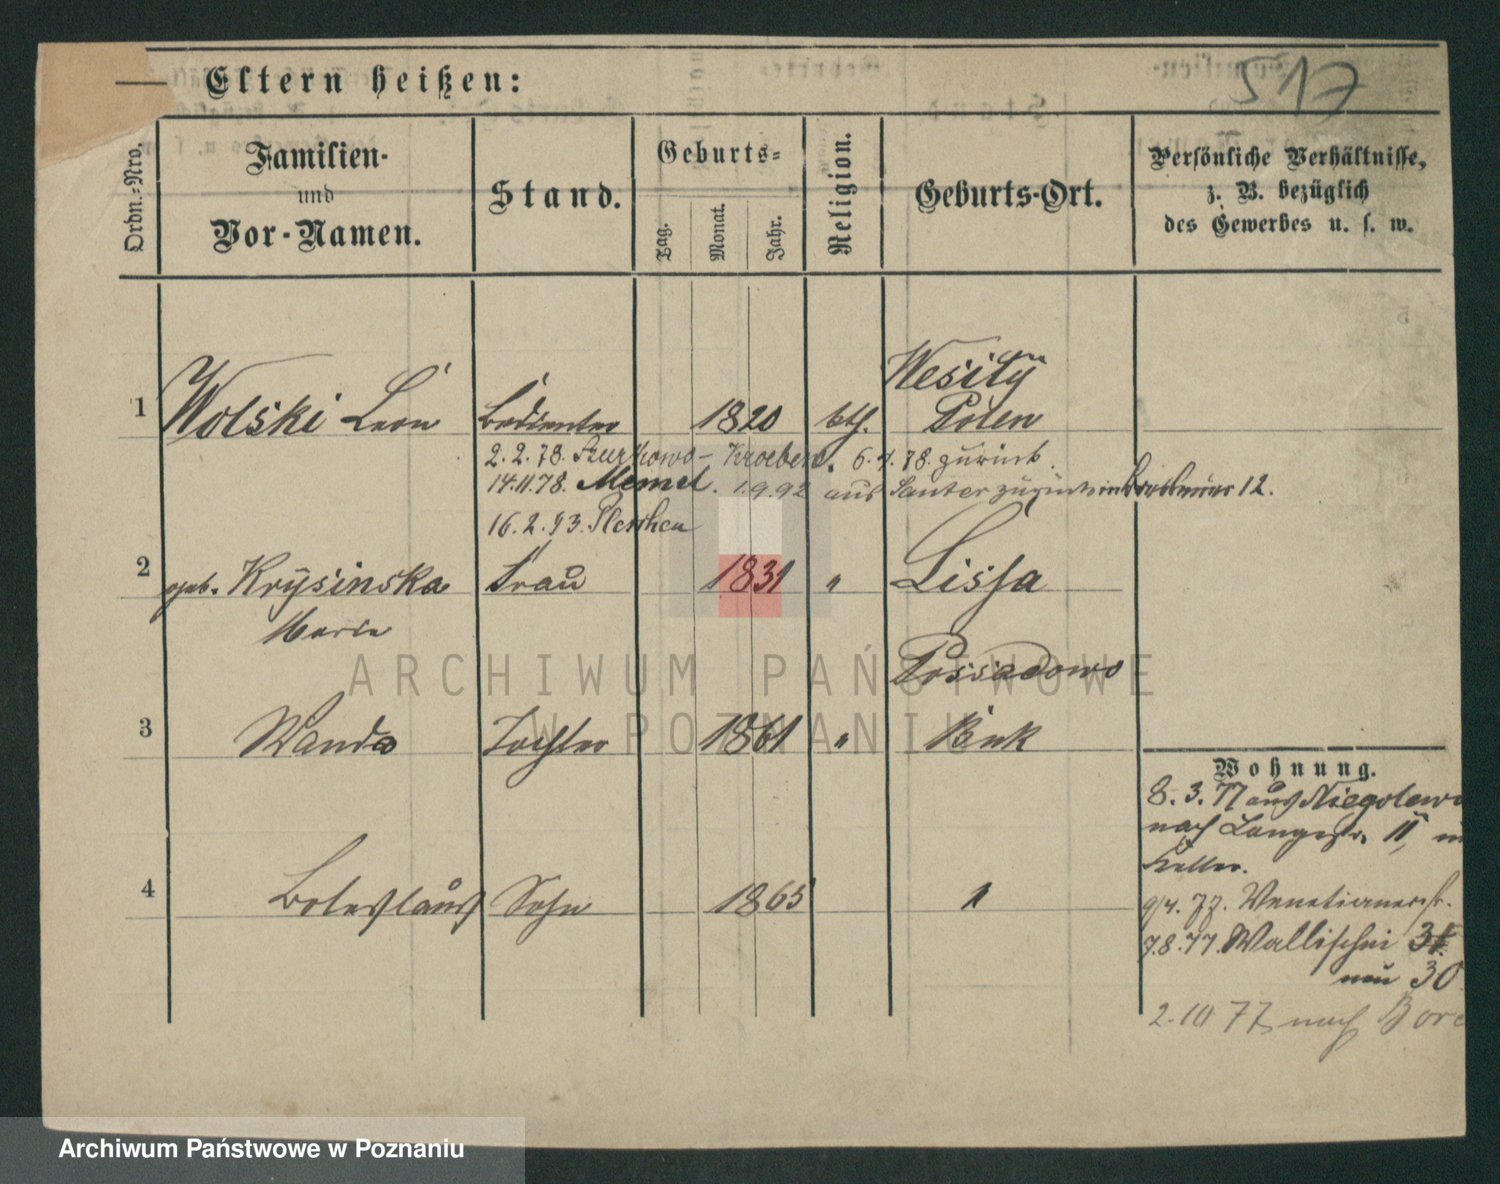 517
Eltern heißen:
Ordn.-Nro.
Familien-
und
Vor-Namen.
Stand.
Geburts-
Tag.
Monat.
Jahr.
Religion.
Geburts-Ort.
Persönliche Verhältnisse,
z. B. bezüglich
des Gewerbes u. s. w.
1 Wolski Leon Bedienter 1820 kth. Polen
2.2.78. Kroeben. 6.4.78. zurück.
14.11.78. Memel. 1.9.92 aus 12.
16.2.93. Pleschen
2 geb. Krysinska Frau 1831 " Lissa
Marie
Possadowo
3 Wanda Tochter 1861 " Buk
4 Boleslaus Sohn 1865 "
Wohnung.
8.3.77 aus Niegolewo
nach Langestr. 11,
Keller.
9/4.77. Venetianerstr.
7.8.77. Wallischei 31
neu 30
2.10 77 nach
ARCHIWUM PAŃSTWOWE
W POZNANIU
Archiwum Państwowe w Poznaniu